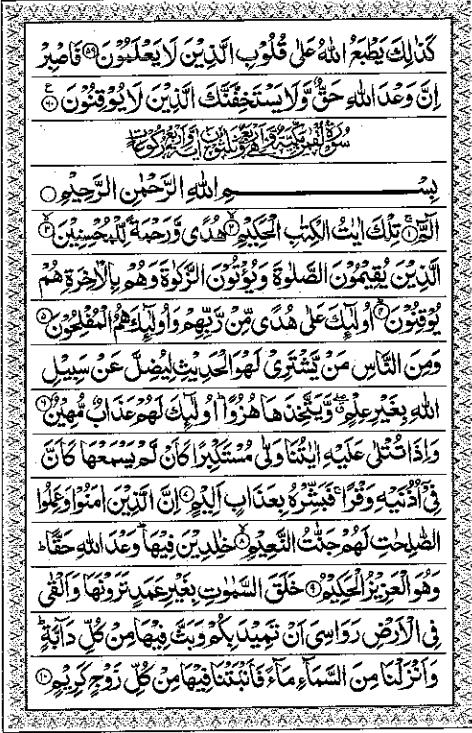 كَذٰلِكَ يَطْبَعُ اللّٰهُ عَلٰى قُلُوْبِ الَّذِيْنَ لَا يَعْلَمُوْنَ ﴿۵۹﴾ فَاصْبِرْ
اِنَّ وَعْدَ اللّٰهِ حَقٌّ وَّلَا يَسْتَخِفَّنَّكَ الَّذِيْنَ لَا يُوْقِنُوْنَ ﴿۶۰﴾
سُوْرَةُ لُقْمٰنَ مَكِّيَّةٌ وَّهِيَ اَرْبَعٌ وَّثَلٰثُوْنَ اٰيَةً وَّاَرْبَعُ رُكُوْعَاتٍ
بِسْمِ اللّٰهِ الرَّحْمٰنِ الرَّحِيْمِ
الٓمّٓ ﴿۱﴾ تِلْكَ اٰيٰتُ الْكِتٰبِ الْحَكِيْمِ ﴿۲﴾ هُدًى وَّرَحْمَةً لِّلْمُحْسِنِيْنَ ﴿۳﴾
الَّذِيْنَ يُقِيْمُوْنَ الصَّلٰوةَ وَيُؤْتُوْنَ الزَّكٰوةَ وَهُمْ بِالْاٰخِرَةِ هُمْ
يُوْقِنُوْنَ ﴿۴﴾ اُولٰٓئِكَ عَلٰى هُدًى مِّنْ رَّبِّهِمْ وَاُولٰٓئِكَ هُمُ الْمُفْلِحُوْنَ ﴿۵﴾
وَمِنَ النَّاسِ مَنْ يَّشْتَرِيْ لَهْوَ الْحَدِيْثِ لِيُضِلَّ عَنْ سَبِيْلِ
اللّٰهِ بِغَيْرِ عِلْمٍ ۖ وَّيَتَّخِذَهَا هُزُوًا ؕ اُولٰٓئِكَ لَهُمْ عَذَابٌ مُّهِيْنٌ ﴿۶﴾
وَاِذَا تُتْلٰى عَلَيْهِ اٰيٰتُنَا وَلّٰى مُسْتَكْبِرًا كَاَنْ لَّمْ يَسْمَعْهَا كَاَنَّ
فِيْٓ اُذُنَيْهِ وَقْرًا ۚ فَبَشِّرْهُ بِعَذَابٍ اَلِيْمٍ ﴿۷﴾ اِنَّ الَّذِيْنَ اٰمَنُوْا وَعَمِلُوا
الصّٰلِحٰتِ لَهُمْ جَنّٰتُ النَّعِيْمِ ﴿۸﴾ خٰلِدِيْنَ فِيْهَا ؕ وَعْدَ اللّٰهِ حَقًّا ؕ
وَهُوَ الْعَزِيْزُ الْحَكِيْمُ ﴿۹﴾ خَلَقَ السَّمٰوٰتِ بِغَيْرِ عَمَدٍ تَرَوْنَهَا وَاَلْقٰى
فِي الْاَرْضِ رَوَاسِيَ اَنْ تَمِيْدَ بِكُمْ وَبَثَّ فِيْهَا مِنْ كُلِّ دَآبَّةٍ ؕ
وَاَنْزَلْنَا مِنَ السَّمَآءِ مَآءً فَاَنْبَتْنَا فِيْهَا مِنْ كُلِّ زَوْجٍ كَرِيْمٍ ﴿۱۰﴾